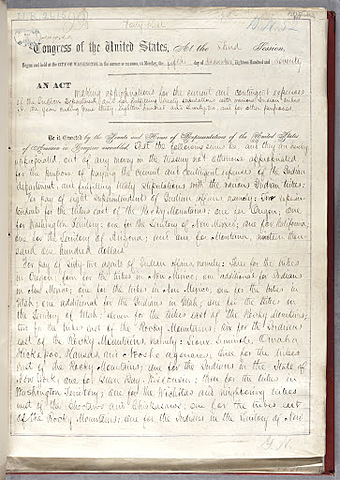 Forty-first
Congress of the United States, At the Third Session,
Begun and held at the CITY OF WASHINGTON, in the District of Columbia, on Monday, the fifth day of December, Eighteen Hundred and Seventy
AN ACT
Making appropriations for the current and contingent expenses
of the Indian Department, and for fulfilling treaty stipulations with various Indian tribes
for the year ending June thirty, eighteen hundred and seventy-two, and for other purposes.
Be it Enacted by the Senate and House of Representatives of the United States
of America in Congress assembled, That the following sums be, and they are hereby
appropriated, out of any money in the treasury not otherwise appropriated
for the purpose of paying the current and contingent expenses of the Indian
department, and fulfilling treaty stipulations with the various Indian tribes:
For pay of eight superintendents of Indian affairs, namely: Two superin-
tendents for the tribes east of the Rocky Mountains; one in Oregon; one
for Washington Territory; one for the Territory of New Mexico; one for California
one for the Territory of Arizona; and one for Montana,
sand one hundred dollars
For pay of sixty-two agents of Indian affairs, namely: Three for the tribes
in Oregon; four for the tribes in New Mexico; one additional for Indians
in New Mexico; one for the tribes in New Mexico; one for the tribes in
Utah; one additional for the Indians in Utah; one for the tribes in
the Territory of Utah; eleven for the tribes east of the Rocky Mountains;
two for the tribes east of the Rocky Mountains; five for the Indians
east of the Rocky Mountains, namely: Sioux, Seminole, Omaha,
Kickapoo, Kansas, and Neosho agencies; three for the tribes
east of the Rocky Mountains; one for the Indians in the State of
New York; one for Green Bay, Wisconsin; three for the tribes in
Washington Territory; one for the Wichitas and neighboring tribes
west of the Choctaws and Chickasaws; one for the tribes east
of the Rocky Mountains; one for the Indians in the Territory of New